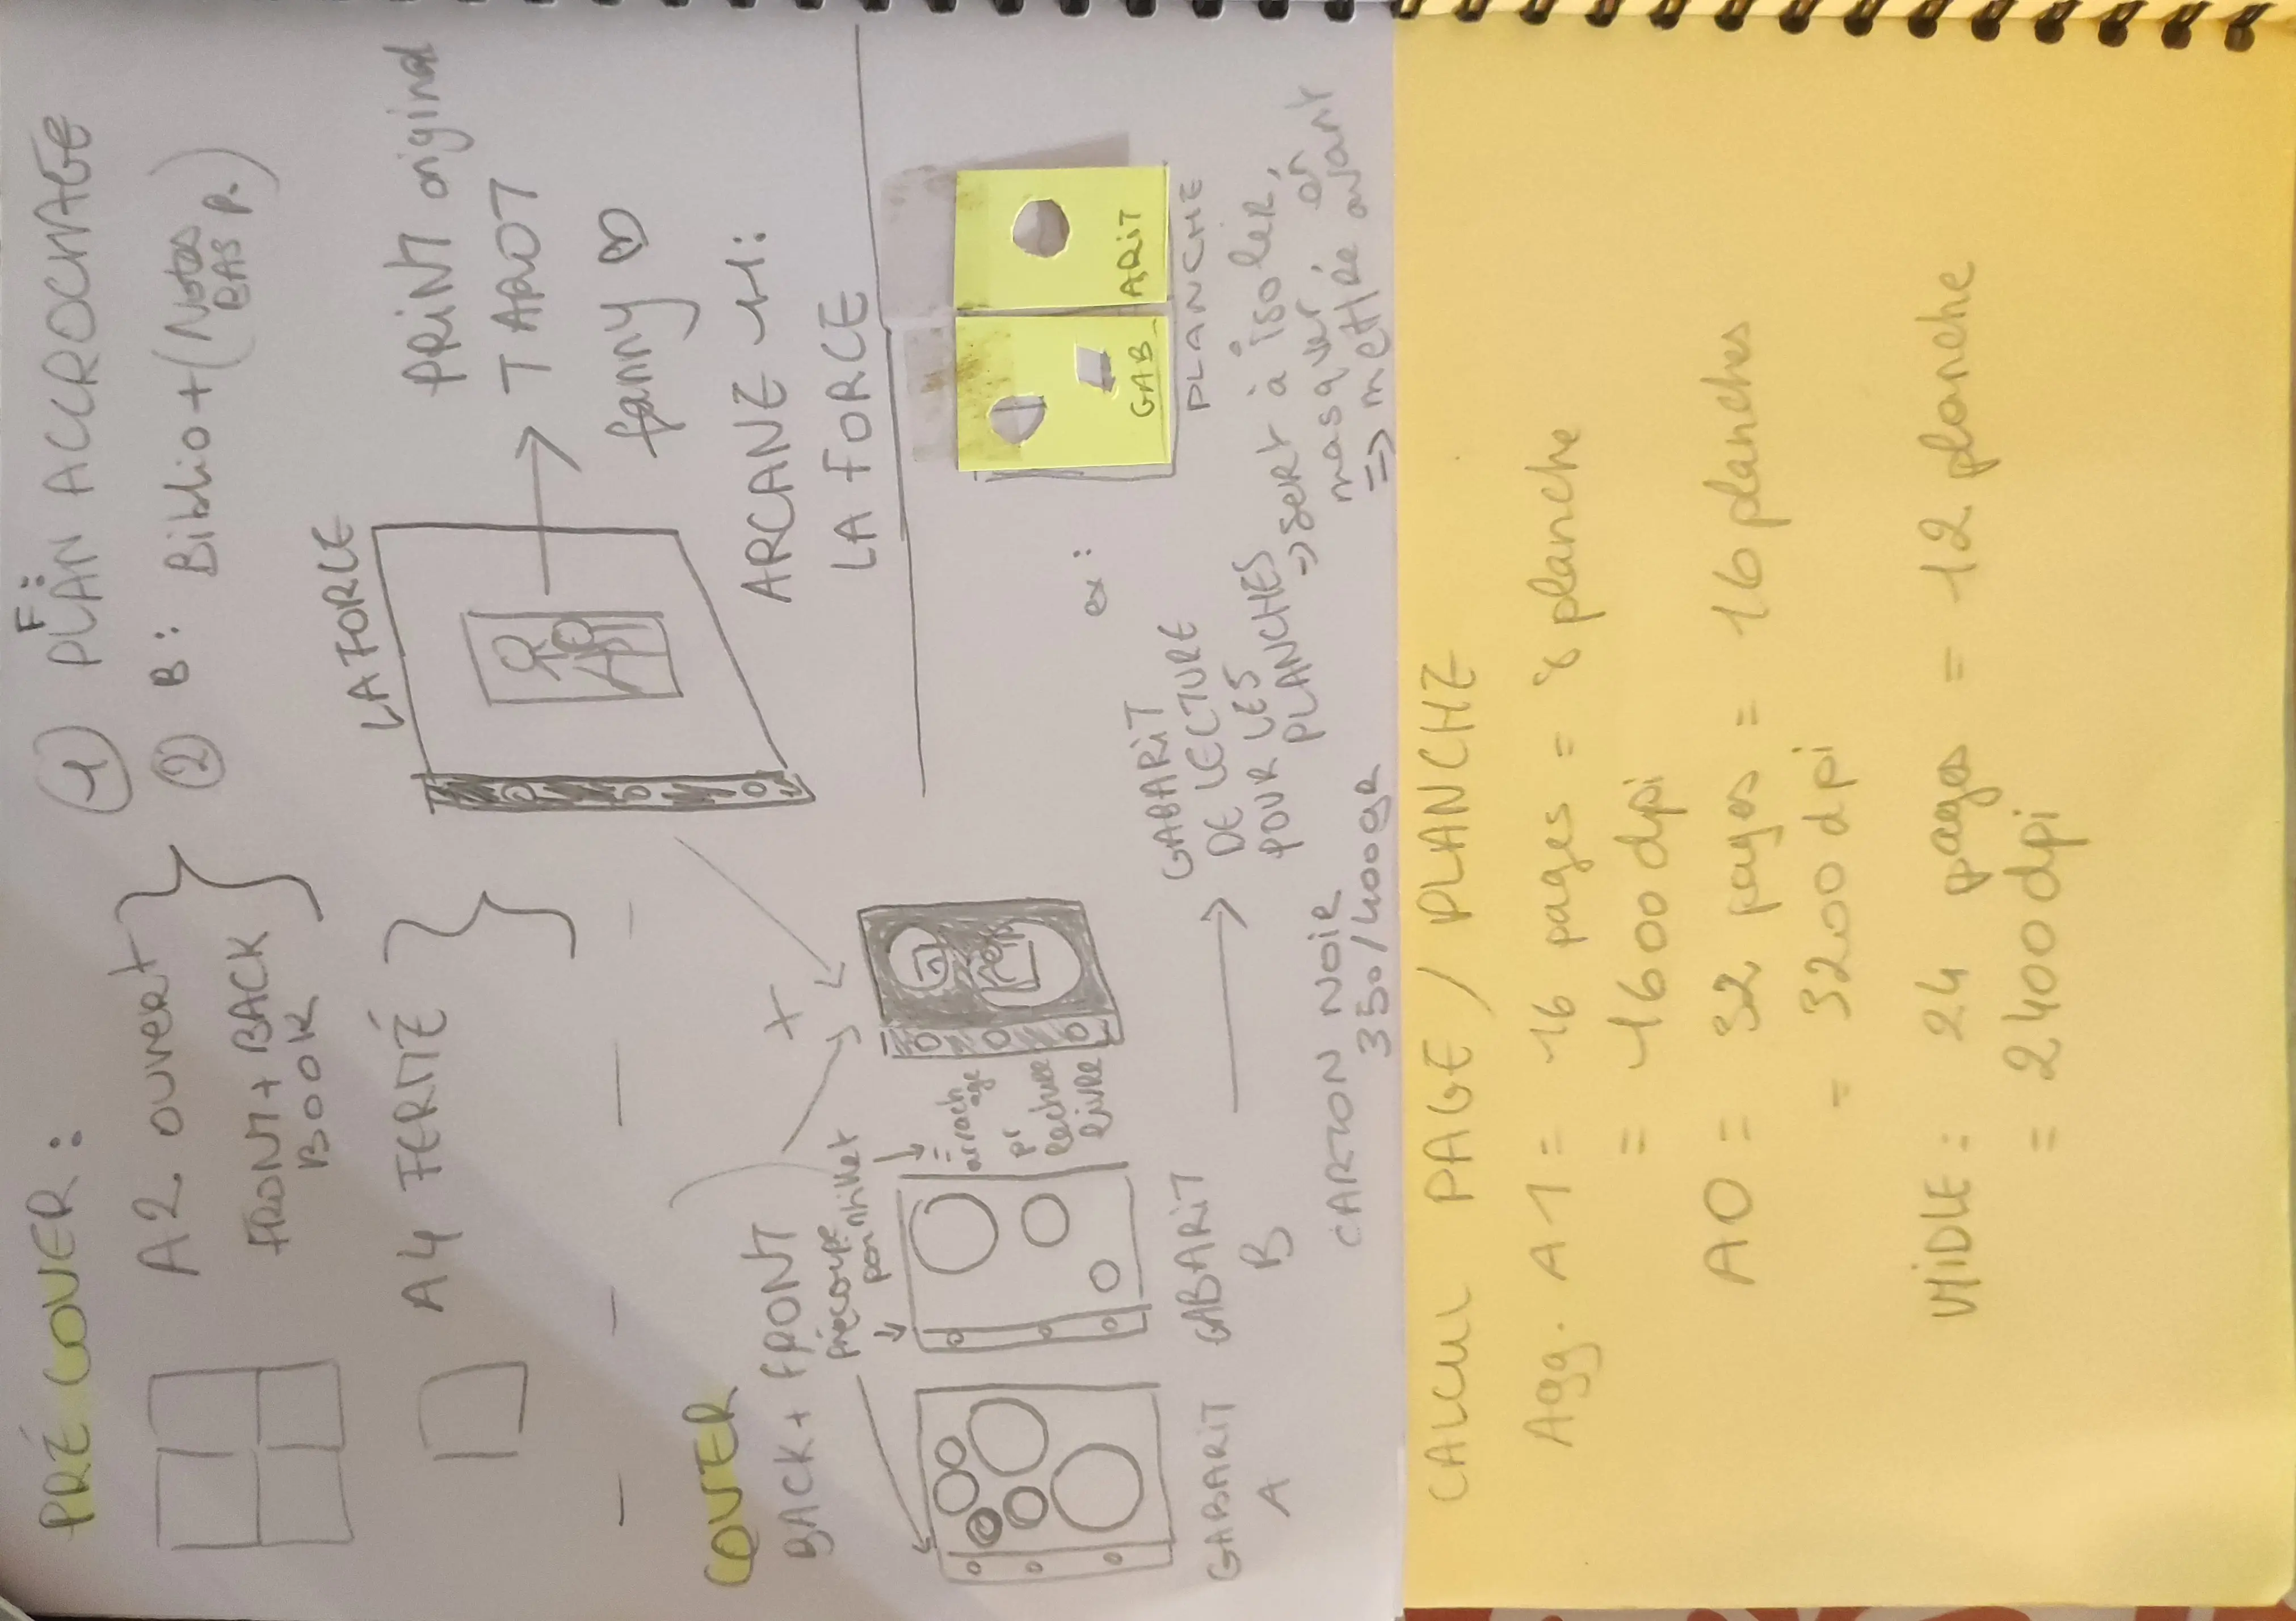 PRÉ COVER :
A2 ouvert
FRONT + BACK
BOOK
A4 FERMÉ
① F: PLAN ACCROCHAGE
② B: Biblio + (Notes BAS P.)
LA FORCE
PRINT original
TAROT
fanny ♡
ARCANE 11:
LA FORCE
COVER
BACK + FRONT
précoupe
par millet
= arrachage
pr
lecture
livre
+
GABARIT
A
GABARIT
B
CARTON NOIR
350/400gr
GABARIT
DE LECTURE
POUR LES
PLANCHES
ex:
GAB
ARIT
PLANCHE
=> sert à isoler,
masquer, et
=> mettre avant
CALCUL PAGE / PLANCHE
Agg. A1 = 16 pages = 8 planche
= 1600 dpi
A0 = 32 pages = 16 planches
= 3200 dpi
MIDLE : 24 pages = 12 planche
= 2400 dpi